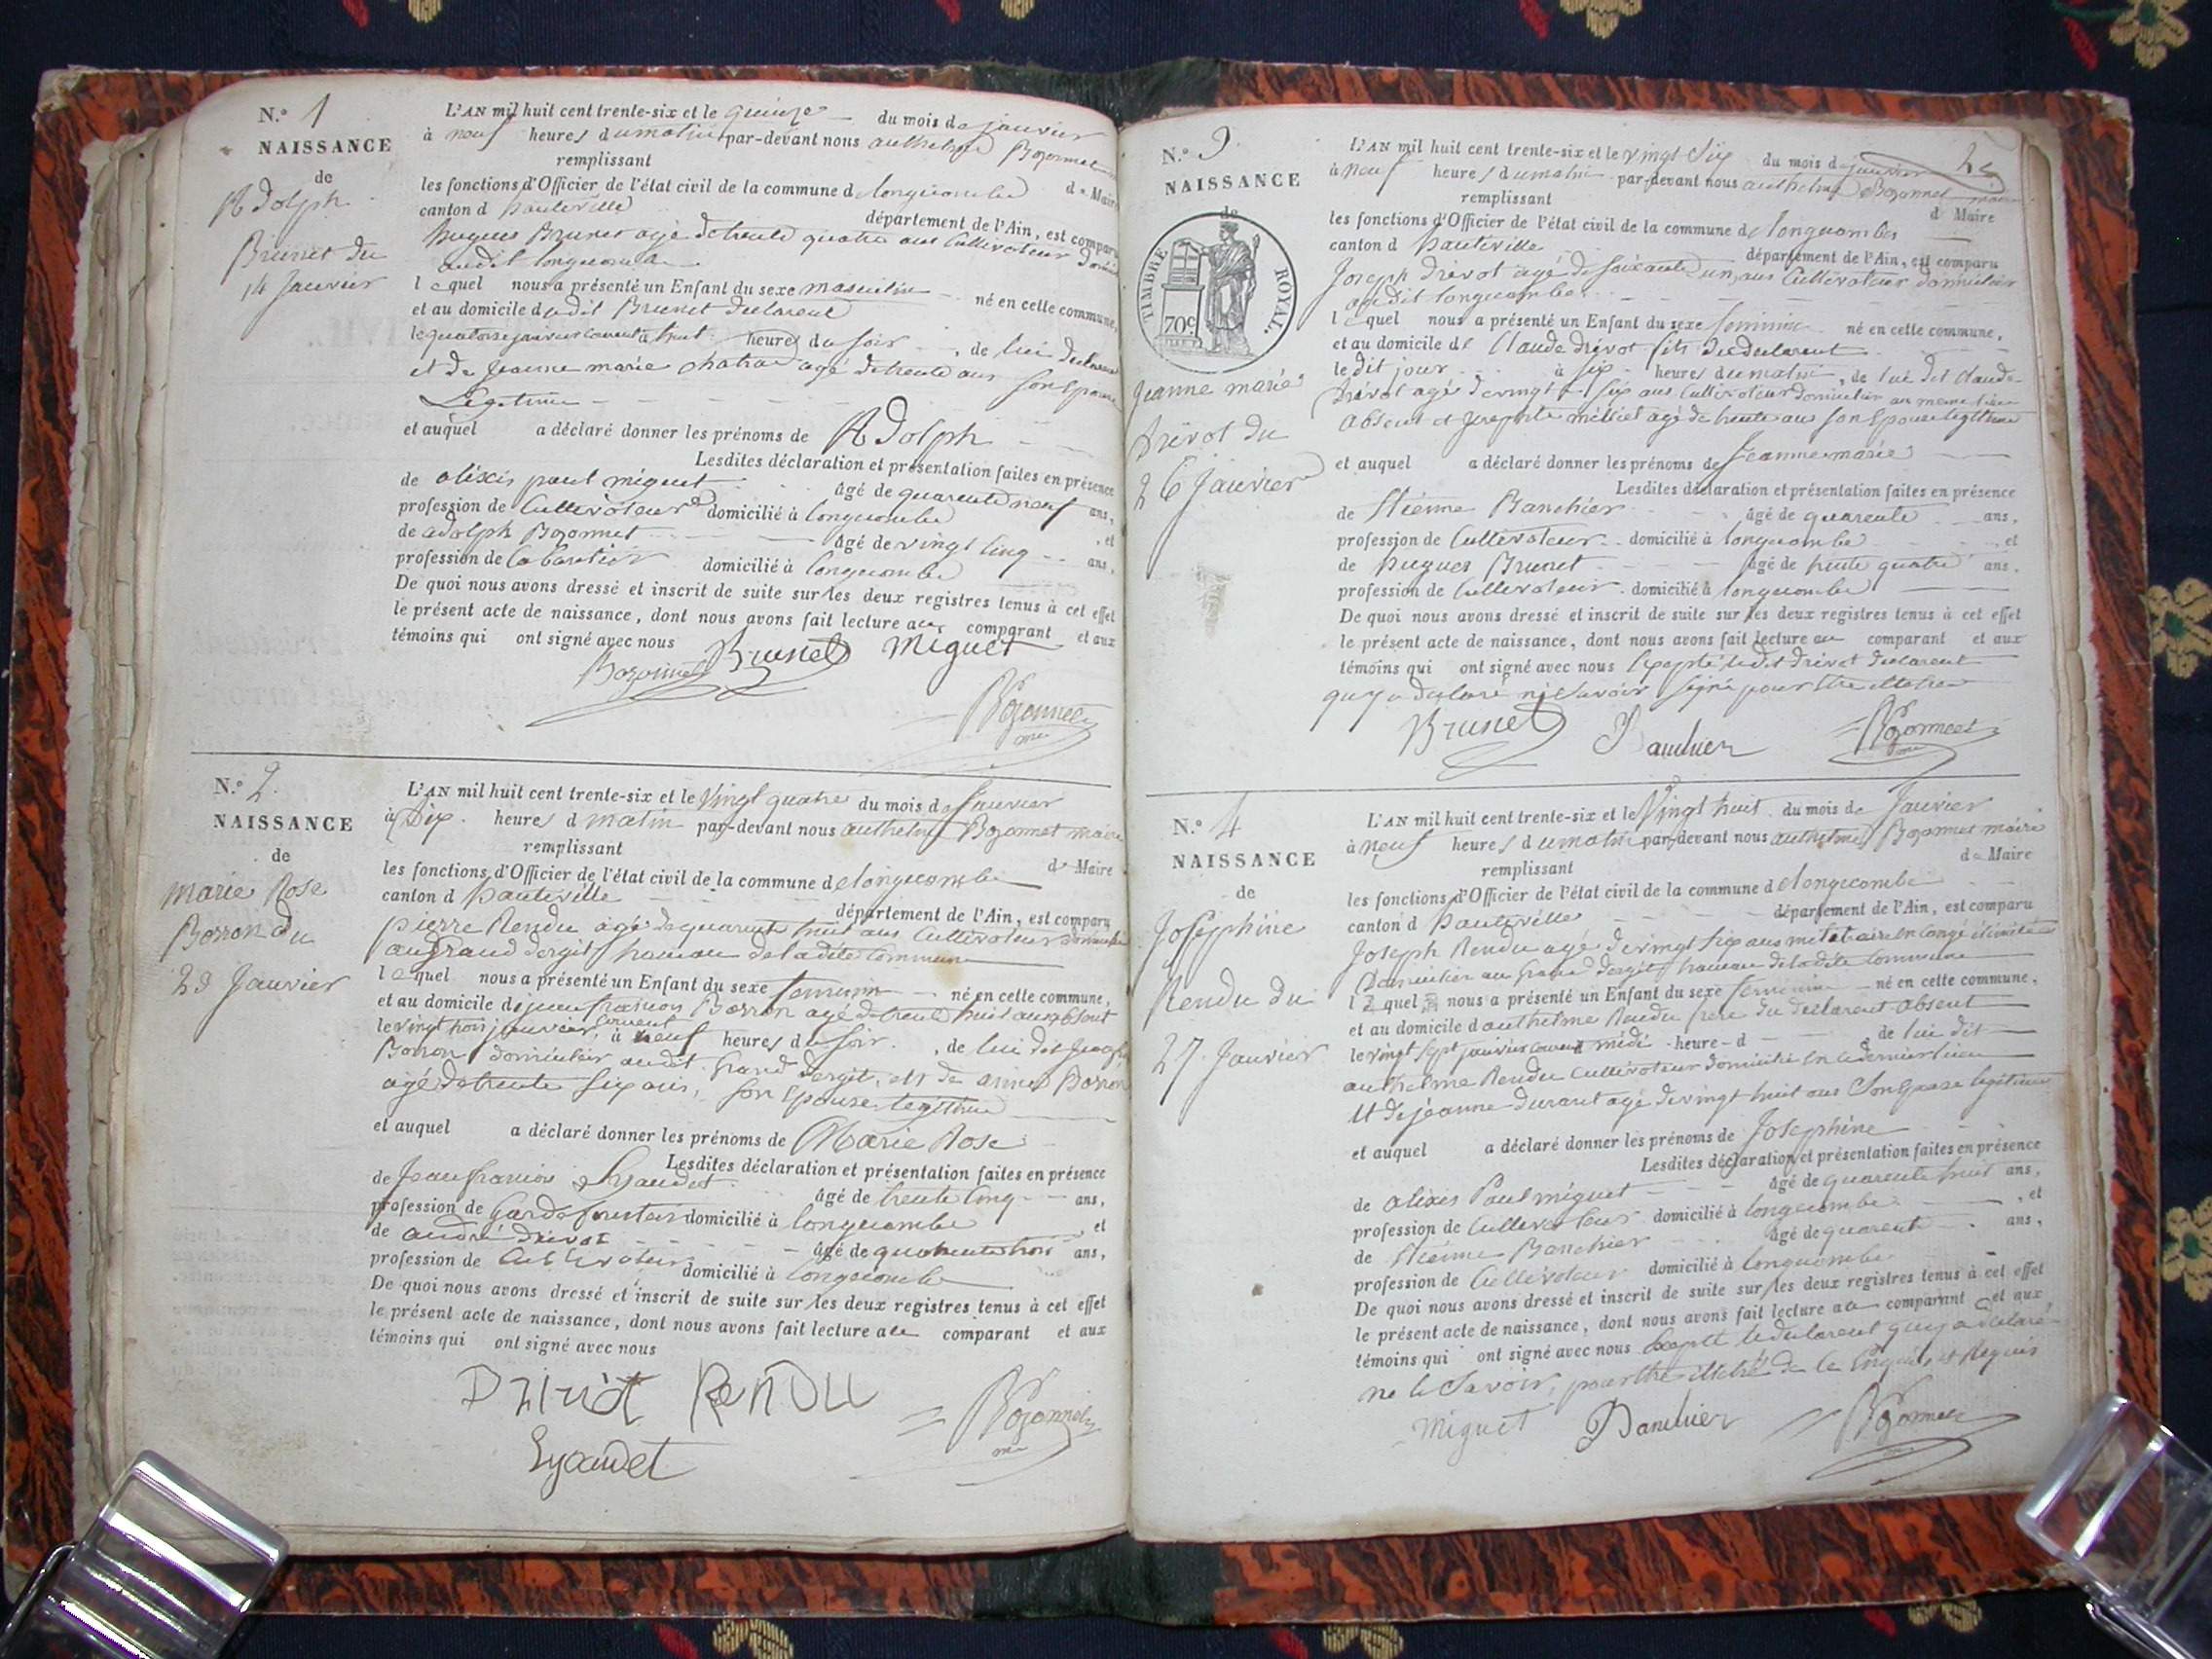 N.° 1
NAISSANCE
de
Adolph
Brunet du
14 Janvier
L'AN mil huit cent trente-six et le quinze du mois de janvier
à neuf heures du matin par-devant nous anthelme Bozonnet
remplissant
les fonctions d'Officier de l'état civil de la commune de longecombe de Maire
canton d hauteville département de l'Ain, est comparu
hugues Brunet agé de trente quatre ans Cultivateur
audit longecombe
lequel nous a présenté un Enfant du sexe masculin né en cette commune,
et au domicile dudit Brunet declarent
le quatorze janvier courent à huit heures du soir, de lui declarent
et de Jeanne marie agé de trente ans son Epouse
Legitime
et auquel a déclaré donner les prénoms de Adolph
Lesdites déclaration et présentation faites en présence
de alixis paul miguet âgé de quarente neuf ans,
profession de Cultivateur domicilié à longecombe, et
de adolph Bozonnet âgé de vingt Cinq ans,
profession de Cabaretier domicilié à longecombe
De quoi nous avons dressé et inscrit de suite sur les deux registres tenus à cet effet
le présent acte de naissance, dont nous avons fait lecture aux comparant et aux
témoins qui ont signé avec nous
Bozonnet Brunet Miguet
Bozonnet
N.° 2
NAISSANCE
de
Marie Rose
Borron du
23 Janvier
L'AN mil huit cent trente-six et le Vingt quatre du mois de Janvier
à Dix heures d matin par-devant nous anthelme Bozonnet maire
remplissant
les fonctions d'Officier de l'état civil de la commune de longecombe de Maire
canton d hauteville département de l'Ain, est comparu
pierre Rendu agé de quarente huit ans Cultivateur
au grand dergit hameau de la dite Commune
lequel nous a présenté un Enfant du sexe feminin né en cette commune,
et au domicile de jean francois Borron agé de trente huit ans absent
le vingt trois janvier courent à neuf heures du soir, de lui dit
Borron domicilier audit Grand dergit, et de Borron
agé de trente six ans, son Epouse legitime
et auquel a déclaré donner les prénoms de Marie Rose
Lesdites déclaration et présentation faites en présence
de Jean francois Lyaudet âgé de trente Cinq ans,
profession de Garde forestier domicilié à longecombe, et
de andré drivot âgé de quarente trois ans,
profession de Cultivateur domicilié à longecombe
De quoi nous avons dressé et inscrit de suite sur les deux registres tenus à cet effet
le présent acte de naissance, dont nous avons fait lecture au comparant et aux
témoins qui ont signé avec nous
Drivot Rendu
Lyaudet Bozonnet
N.° 3
NAISSANCE
de
TIMBRE ROYAL.
70c
Jeanne marie
Drivot du
26 Janvier
L'AN mil huit cent trente-six et le vingt Six du mois de janvier
à neuf heures du matin par-devant nous anthelme Bozonnet maire
remplissant
les fonctions d'Officier de l'état civil de la commune de longecombe d Maire
canton d hauteville département de l'Ain, est comparu
Joseph Drivot agé de soixante un ans Cultivateur domicilier
audit longecombe
lequel nous a présenté un Enfant du sexe feminin né en cette commune,
et au domicile de Claude Drivot fils du declarent
le dit jour à six heures du matin, de lui dit Claude
Drivot agé de vingt six ans Cultivateur domicilier au meme lieu
absent et agé de trente ans son Epouse legitime
et auquel a déclaré donner les prénoms de Jeanne marie
Lesdites déclaration et présentation faites en présence
de Etienne Banchier âgé de quarente ans,
profession de Cultivateur domicilié à longecombe, et
de hugues Brunet âgé de trente quatre ans,
profession de Cultivateur domicilié à longecombe
De quoi nous avons dressé et inscrit de suite sur les deux registres tenus à cet effet
le présent acte de naissance, dont nous avons fait lecture au comparant et aux
témoins qui ont signé avec nous Excepté ledit Drivot declarent
quy a declaré ne savoir signé pour
Brunet Banchier Bozonnet
N.° 4
NAISSANCE
de
Joséphine
Rendu du
27 Janvier
L'AN mil huit cent trente-six et le Vingt huit du mois de Janvier
à neuf heures du matin par-devant nous anthelme Bozonnet maire
remplissant
les fonctions d'Officier de l'état civil de la commune de longecombe de Maire
canton d hauteville département de l'Ain, est comparu
Joseph Rendu agé de vingt six ans militaire en Congé illimité
Domicilier au Grand dergit hameau de la dite Commune
lequel nous a présenté un Enfant du sexe feminin né en cette commune,
et au domicile d anthelme Rendu frere du declarent absent
le vingt sept janvier courent à midi heure d de lui dit
anthelme Rendu Cultivateur domicilié en le dernier lieu
et de jeanne durant agé de vingt huit ans Son Epouse legitime
et auquel a déclaré donner les prénoms de Josephine
Lesdites déclaration et présentation faites en présence
de alixis Paul miguet âgé de quarente huit ans,
profession de Cultivateur domicilié à longecombe, et
de Etienne Banchier âgé de quarente ans,
profession de Cultivateur domicilié à longecombe
De quoi nous avons dressé et inscrit de suite sur les deux registres tenus à cet effet
le présent acte de naissance, dont nous avons fait lecture au comparant et aux
témoins qui ont signé avec nous Excepté le declarent quy a declaré
ne le Savoir, pour de ce Enquis et Requis
Miguet Banchier Bozonnet